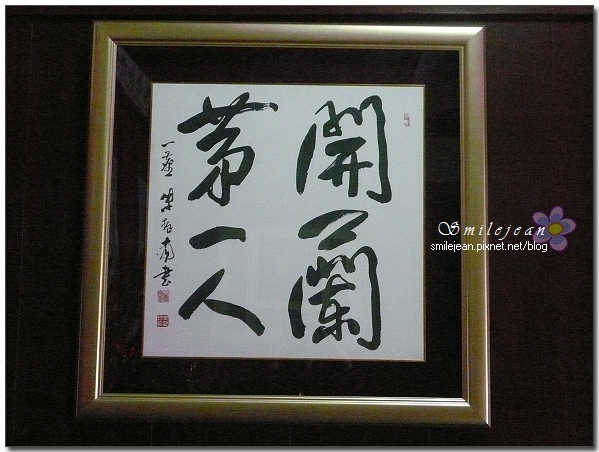 開蘭
第一人
Smilejean
smilejean.pixnet.net/blog